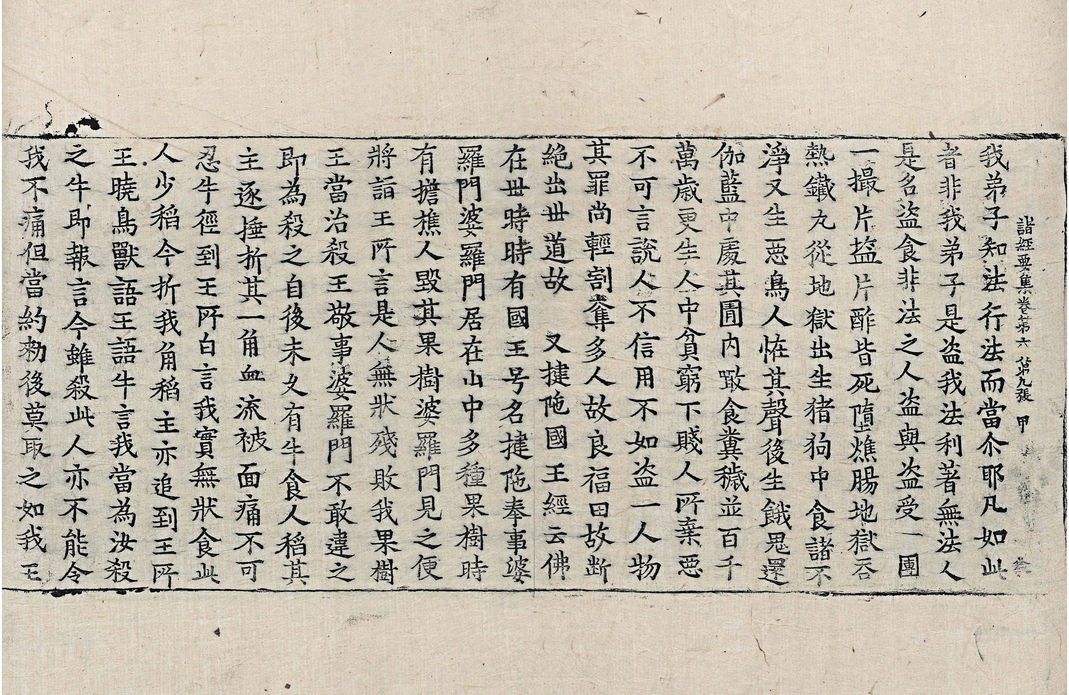 諸經要集卷第六 第九張 甲
我弟子知法行法而當尒耶凡如此
者非我弟子是盗我法利著無法人
是名盗食非法之人盗與盗受一團
一撮片塩片酢皆死墮燋腸地獄吞
熱鐵丸從地獄出生猪狗中食諸不
淨又生惡鳥人恠其聲後生餓鬼還
伽藍中處其圊內噉食糞穢並百千
萬歲更生人中貧窮下賤人所棄惡
不可言說人不信用不如盗一人物
其罪尚輕割奪多人故良福田故断
絶出世道故 又揵陁國王經云佛
在世時時有國王号名揵陁奉事婆
羅門婆羅門居在山中多種果樹時
有擔樵人毀其果樹婆羅門見之便
將詣王所言是人無狀殘敗我果樹
王當治殺王敬事婆羅門不敢違之
即為殺之自後未久有牛食人稻其
主逐捶折其一角血流被面痛不可
忍牛徑到王所白言我實無狀食此
人少稻今折我角稻主亦追到王所
王曉鳥獸語王語牛言我當為汝殺
之牛即報言今雖殺此人亦不能令
我不痛但當約勑後莫取之如我王